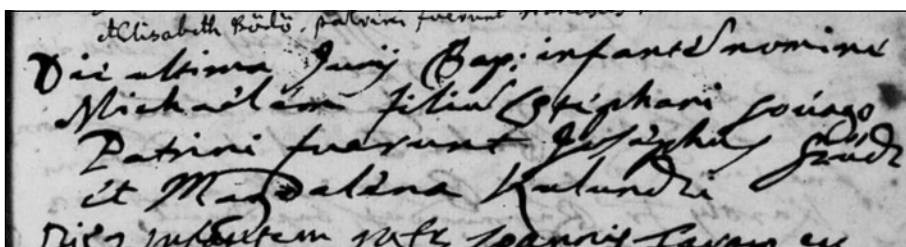 et Elisabeth Bödö, patrini fuerunt
Die ultima Junij Bap: infantē nomine
Michaëlem filiū Stephani Lovago
Patrini fuerunt Josephus
et Magdalena Kulundzi
infantem Joannis